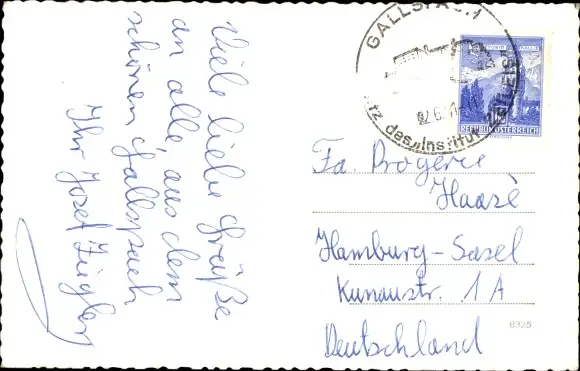 Viele liebe Grüße
an alle, aus dem
schönen Gallspach
Ihr Josef Ziegler
GALLSPACH
itz des Institut
REPUBLIK ÖSTERREICH
Fa. Drogerie
Haase
Hamburg-Sasel
Kunaustr. 1 A
Deutschland
8325